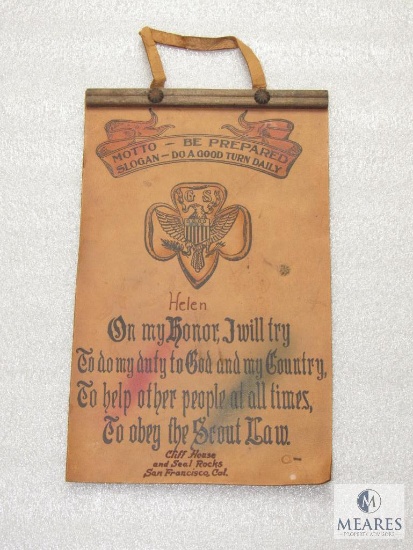 MOTTO - BE PREPARED
SLOGAN - DO A GOOD TURN DAILY
G S
Helen
On my Honor, I will try
To do my duty to God and my Country,
To help other people at all times,
To obey the Scout Law.
Cliff House
and Seal Rocks
San Francisco, Cal.
M
MEARES
PROPERTY ADVISORS